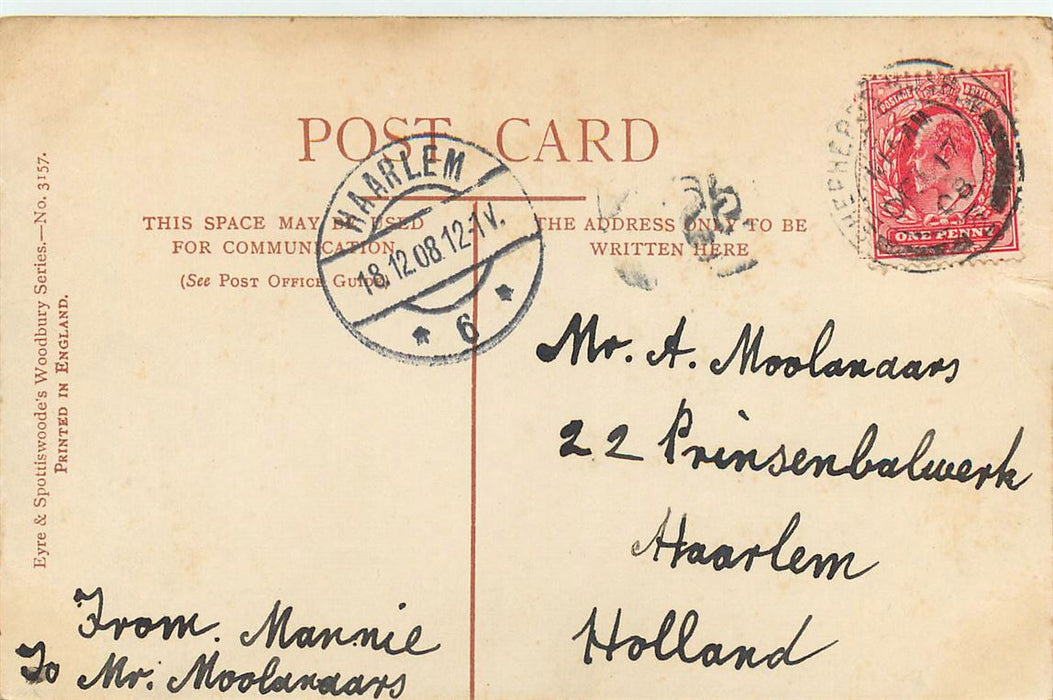 POST CARD
THIS SPACE MAY BE USED
FOR COMMUNICATION
(See Post Office Guide)
THE ADDRESS ONLY TO BE
WRITTEN HERE
Eyre & Spottiswoode's Woodbury Series.—No. 3157.
PRINTED IN ENGLAND.
HAARLEM
18.12.08 12-1V.
6
ONE PENNY
DE 17
08
Mr. A. Moolanaars
22 Prinsenbalwerk
Haarlem
Holland
From. Mannie
To Mr. Moolanaars